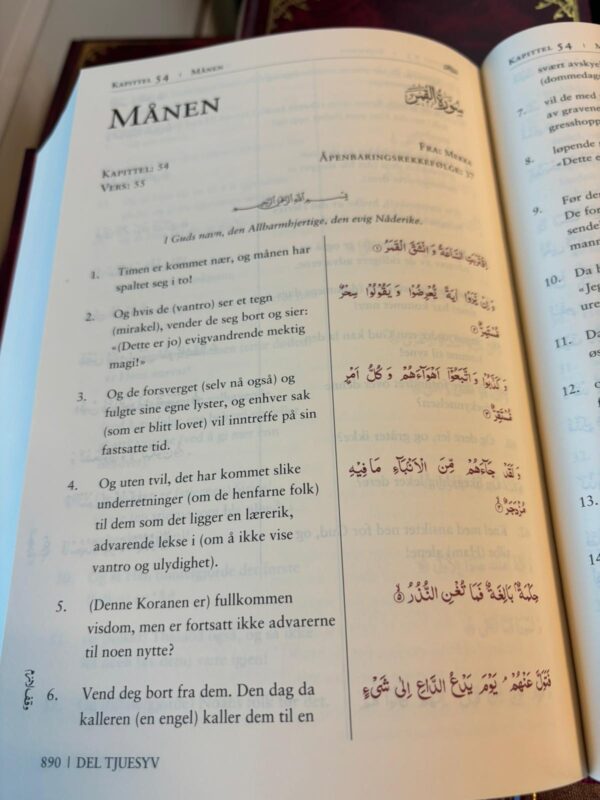 KAPITTEL 54 | MÅNEN
MÅNEN
سورة القمر
KAPITTEL: 54
VERS: 55
FRA: MEKKA
ÅPENBARINGSREKKEFØLGE: 37
I Guds navn, den Allbarmhjertige, den evig Nåderike.
1. Timen er kommet nær, og månen har
spaltet seg i to!
اِقْتَرَبَتِ السَّاعَةُ وَ انْشَقَّ الْقَمَرُ ۱
2. Og hvis de (vantro) ser et tegn
(mirakel), vender de seg bort og sier:
«(Dette er jo) evigvandrende mektig
magi!»
وَ اِنْ يَّرَوْا اٰيَةً يُّعْرِضُوْا وَ يَقُوْلُوْا سِحْرٌ
مُّسْتَمِرٌّ ۲
3. Og de forsverget (selv nå også) og
fulgte sine egne lyster, og enhver sak
(som er blitt lovet) vil inntreffe på sin
fastsatte tid.
وَ كَذَّبُوْا وَ اتَّبَعُوْۤا اَهْوَآءَهُمْ وَ كُلُّ اَمْرٍ
مُّسْتَقِرٌّ ۳
4. Og uten tvil, det har kommet slike
underretninger (om de henfarne folk)
til dem som det ligger en lærerik,
advarende lekse i (om å ikke vise
vantro og ulydighet).
وَ لَقَدْ جَآءَهُمْ مِّنَ الْاَنْۢبَآءِ مَا فِيْهِ
مُزْدَجَرٌ ۴
5. (Denne Koranen er) fullkommen
visdom, men er fortsatt ikke advarerne
til noen nytte?
حِكْمَةٌۢ بَالِغَةٌ فَمَا تُغْنِ النُّذُرُ ۵
6. Vend deg bort fra dem. Den dag da
kalleren (en engel) kaller dem til en
فَتَوَلَّ عَنْهُمْ ۘ يَوْمَ يَدْعُ الدَّاعِ اِلٰى شَيْءٍ
890 | DEL TJUESYV
KAPITTEL 54 |
svært avskye
(dommedag
7. vil de med
av gravene
gresshopp
8. løpende
«Dette e
9. Før de
De for
sende
mann
10. Da h
«Jeg
ure
11. Da
øs
12.
13.